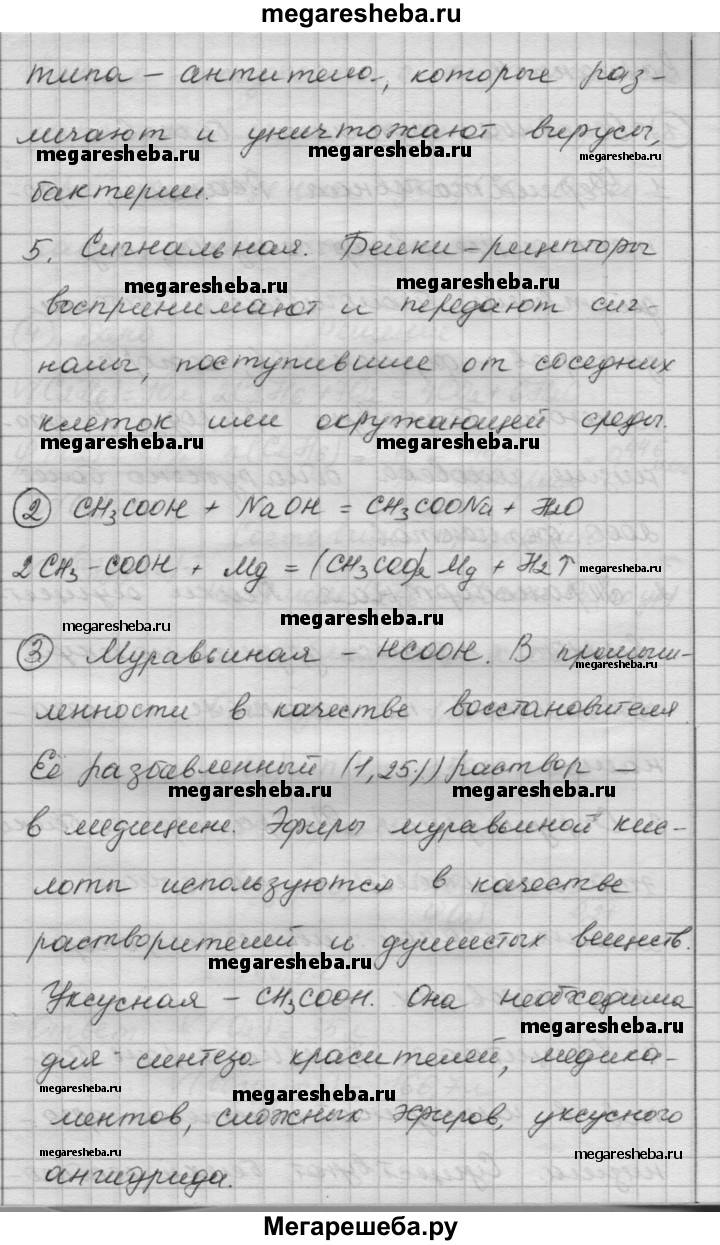 megaresheba.ru
типа – антитела, которые раз-
личают и уничтожают вирусы,
megaresheba.ru megaresheba.ru megaresheba.ru
бактерии.
5. Сигнальная. Белки – рецепторы
megaresheba.ru megaresheba.ru
воспринимают и передают сиг
налы, поступившие от соседних
клеток или окружающей среды.
megaresheba.ru megaresheba.ru
2 CH3COOH + NaOH = CH3COONa + H2O
2CH3-COOH + Mg = (CH3COO)2 Mg + H2↑ megaresheba.ru
megaresheba.ru megaresheba.ru
3 Муравьиная – HCOOH. В промыш-
megaresheba.ru
ленности в качестве восстановителя
Её разбавленный (1,25%) раствор –
megaresheba.ru megaresheba.ru
в медицине. Эфиры муравьиной кис-
лоты используются в качестве
растворителей и душистых веществ.
megaresheba.ru
Уксусная – CH3COOH. Она необходима
megaresheba.ru
для синтеза красителей, медика-
megaresheba.ru megaresheba.ru
ментов, сложных эфиров, уксусного
megaresheba.ru megaresheba.ru
ангидрида.
Мегарешеба.ру